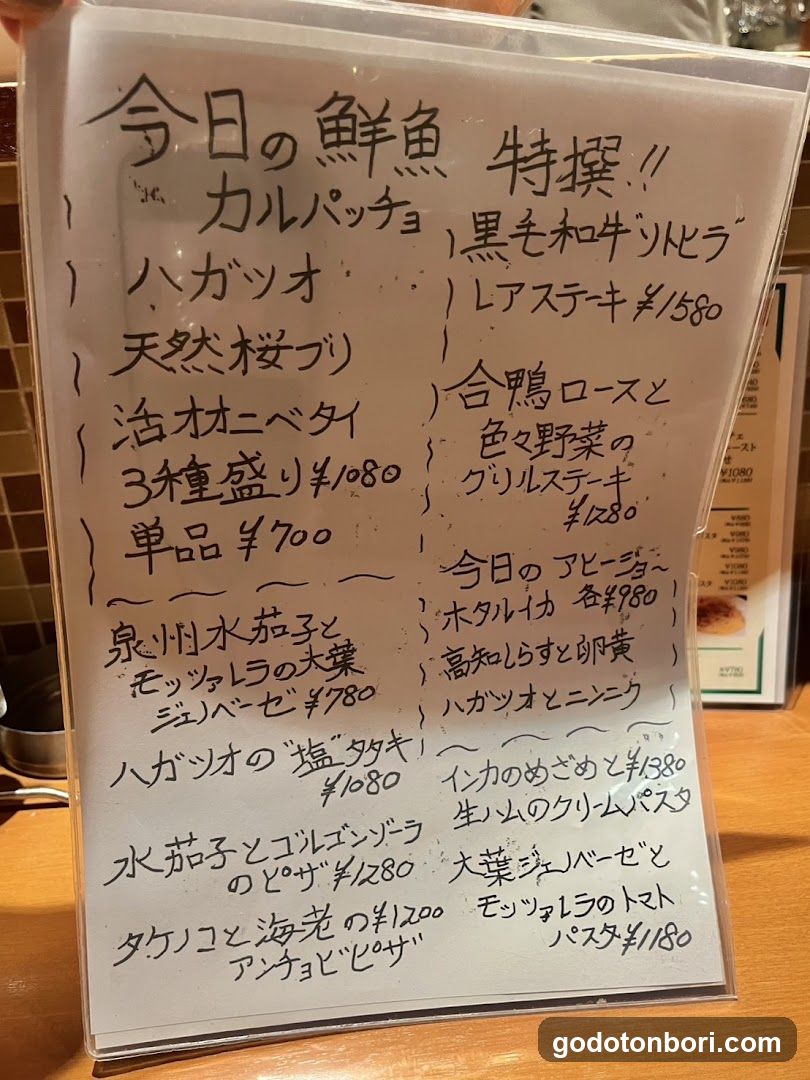 今日の鮮魚
カルパッチョ
ハガツオ
天然桜ブリ
活オオニベタイ
3種盛り¥1080
単品¥700
泉州水茄子と
モッツァレラの大葉
ジェノベーゼ¥780
ハガツオの"塩"タタキ
¥1080
水茄子とゴルゴンゾーラ
のピザ¥1280
タケノコと海老の¥1200
アンチョビピザ
特撰!!
黒毛和牛"ソトヒラ"
レアステーキ¥1580
合鴨ロースと
色々野菜の
グリルステーキ
¥1280
今日のアヒージョ〜
ホタルイカ 各¥980
高知しらすと卵黄
ハガツオとニンニク
インカのめざめと¥1380
生ハムのクリームパスタ
大葉ジェノベーゼと
モッツァレラのトマト
パスタ¥1180
¥1080
¥680
¥980
¥1080
godotonbori.com